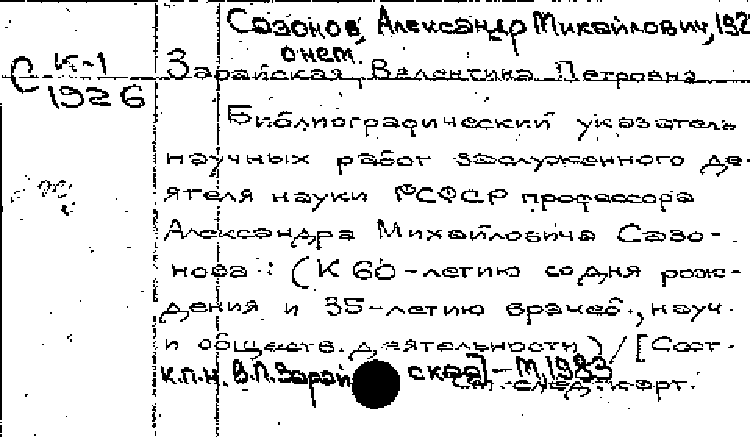 Сазонов, Александр Михайлович, 192
о нем.
С К-1
1926
Зарайская, Валентина Петровна
Библиографический указатель
научных работ заслуженного де-
ятеля науки РСФСР профессора
Александра Михайловича Сазо-
нова : (К 60-летию со дня рож-
дения и 35-летию врачеб., науч.
и обществ. деятельности) / [Сост.
к.п.н. В.П. Зарайская] - М, 1983
см. след. карт.